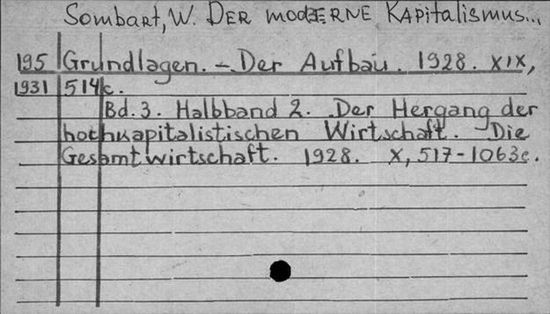 Sombart, W. DER moDERNE KApitalismus...
195 Grundlagen. – Der Aufbau. 1928. XIX,
1931 514 c.
Bd. 3. Halbband 2. Der Hergang der
hochkapitalistischen Wirtschaft. – Die
Gesamtwirtschaft. 1928. X, 517-1063 c.